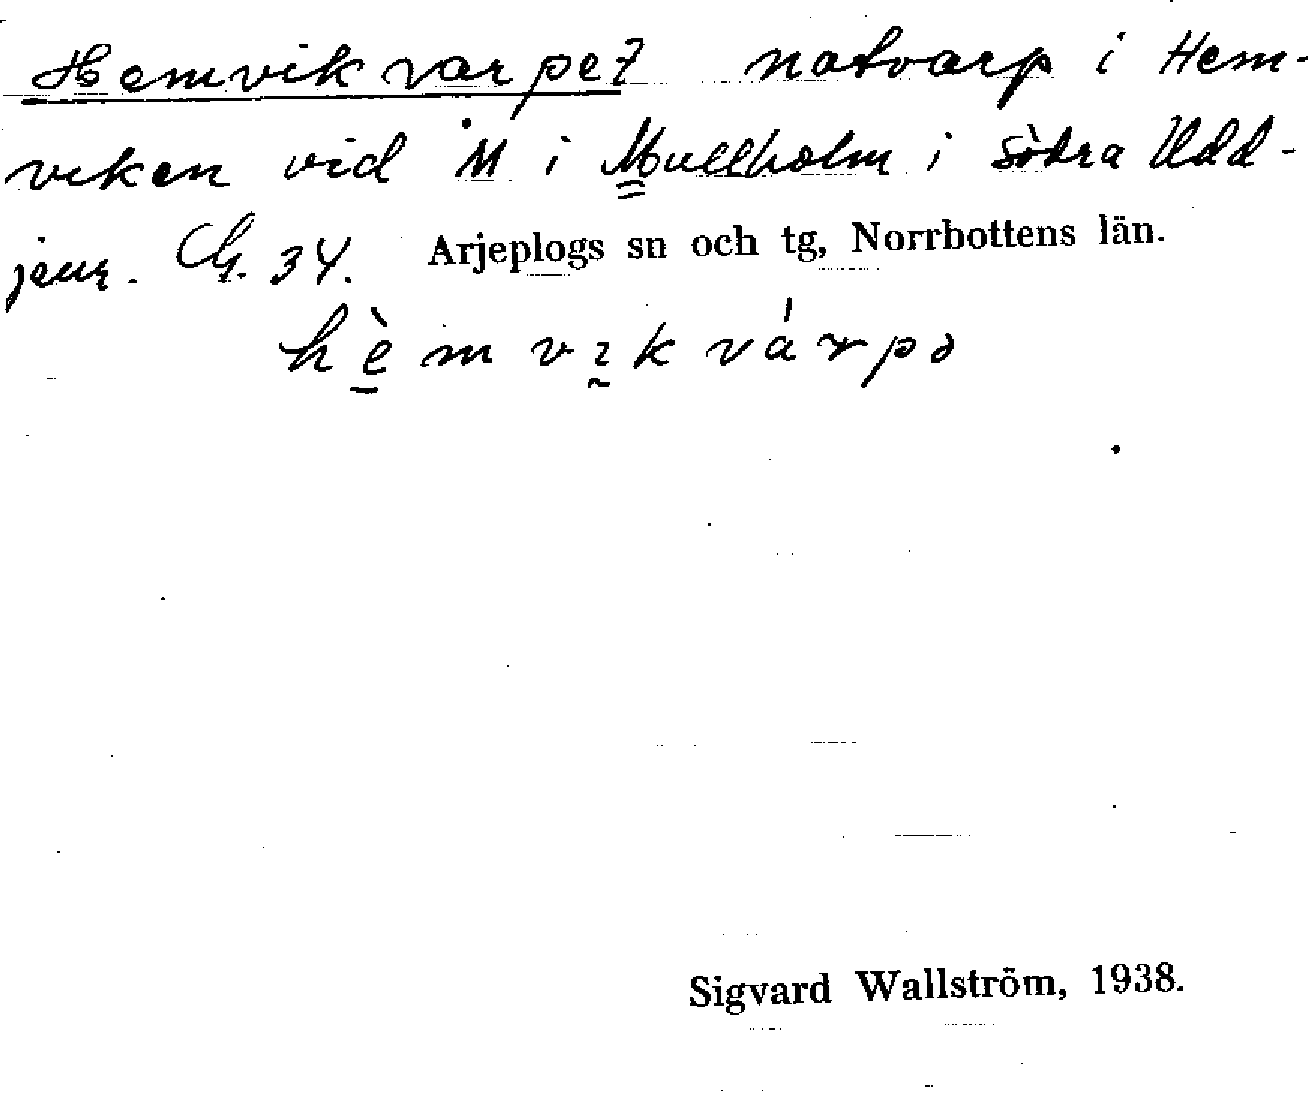 Hemvikvarpet notvarp i Hem-
viken vid M i Mullholm i Södra Udd-
jaur. G. 34. Arjeplogs sn och tg, Norrbottens län.
hè̱mvı̰kvárpə
Sigvard Wallström, 1938.